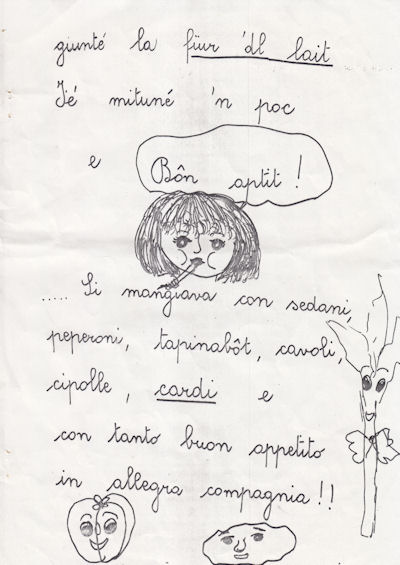 giunté la fiur 'dl lait
Fé mituné 'n poc
e Bôn aptit !
..... Si mangiava con sedani,
peperoni, tapinabôt, cavoli,
cipolle, cardi e
con tanto buon appetito
in allegra compagnia !!